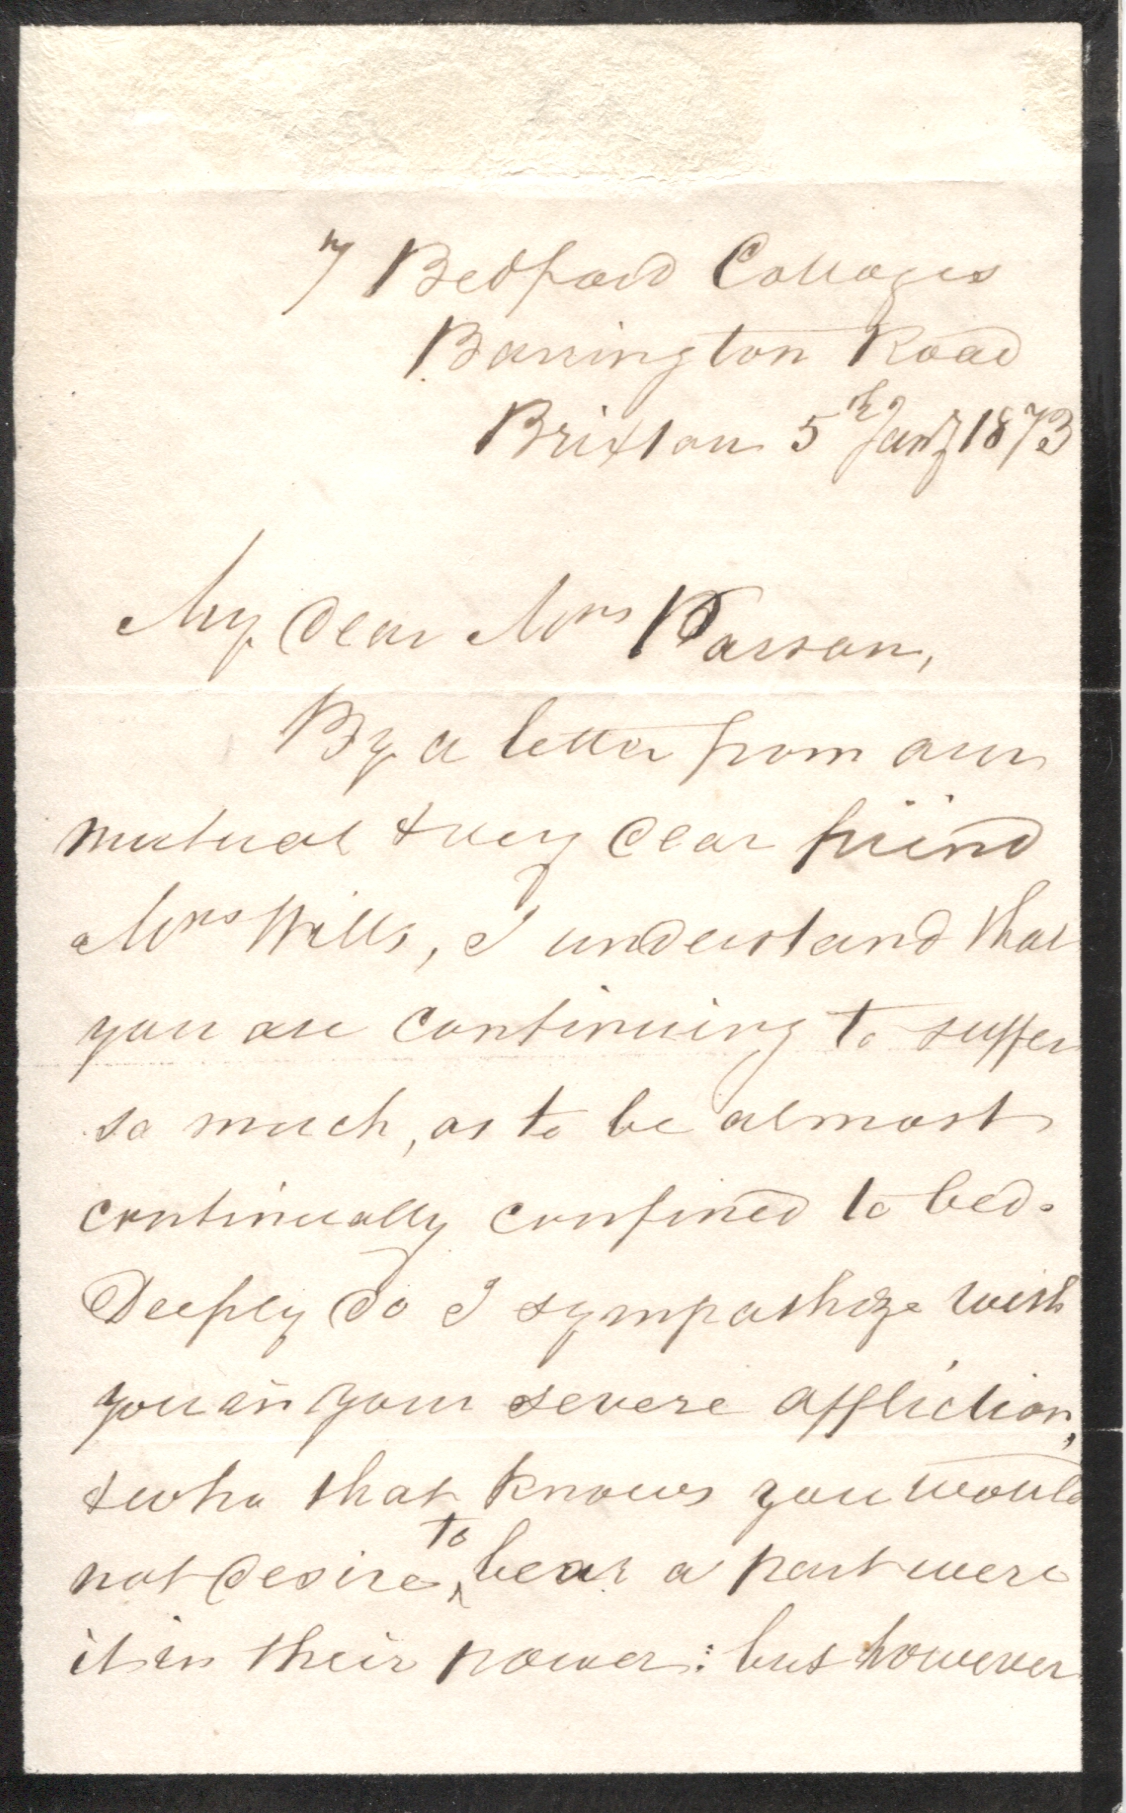 7 Bedford Cottages
Barrington Road
Brixton 5th Jany 1873
My dear Mrs Parson,
By a letter from our
mutual & very dear friend
Mrs Wills, I understand that
you are continuing to suffer
so much, as to be almost
continually confined to bed.
Deeply do I sympathize with
you in your severe affliction,
& who that knows you would
not desire to bear a part were
it in their power: but however